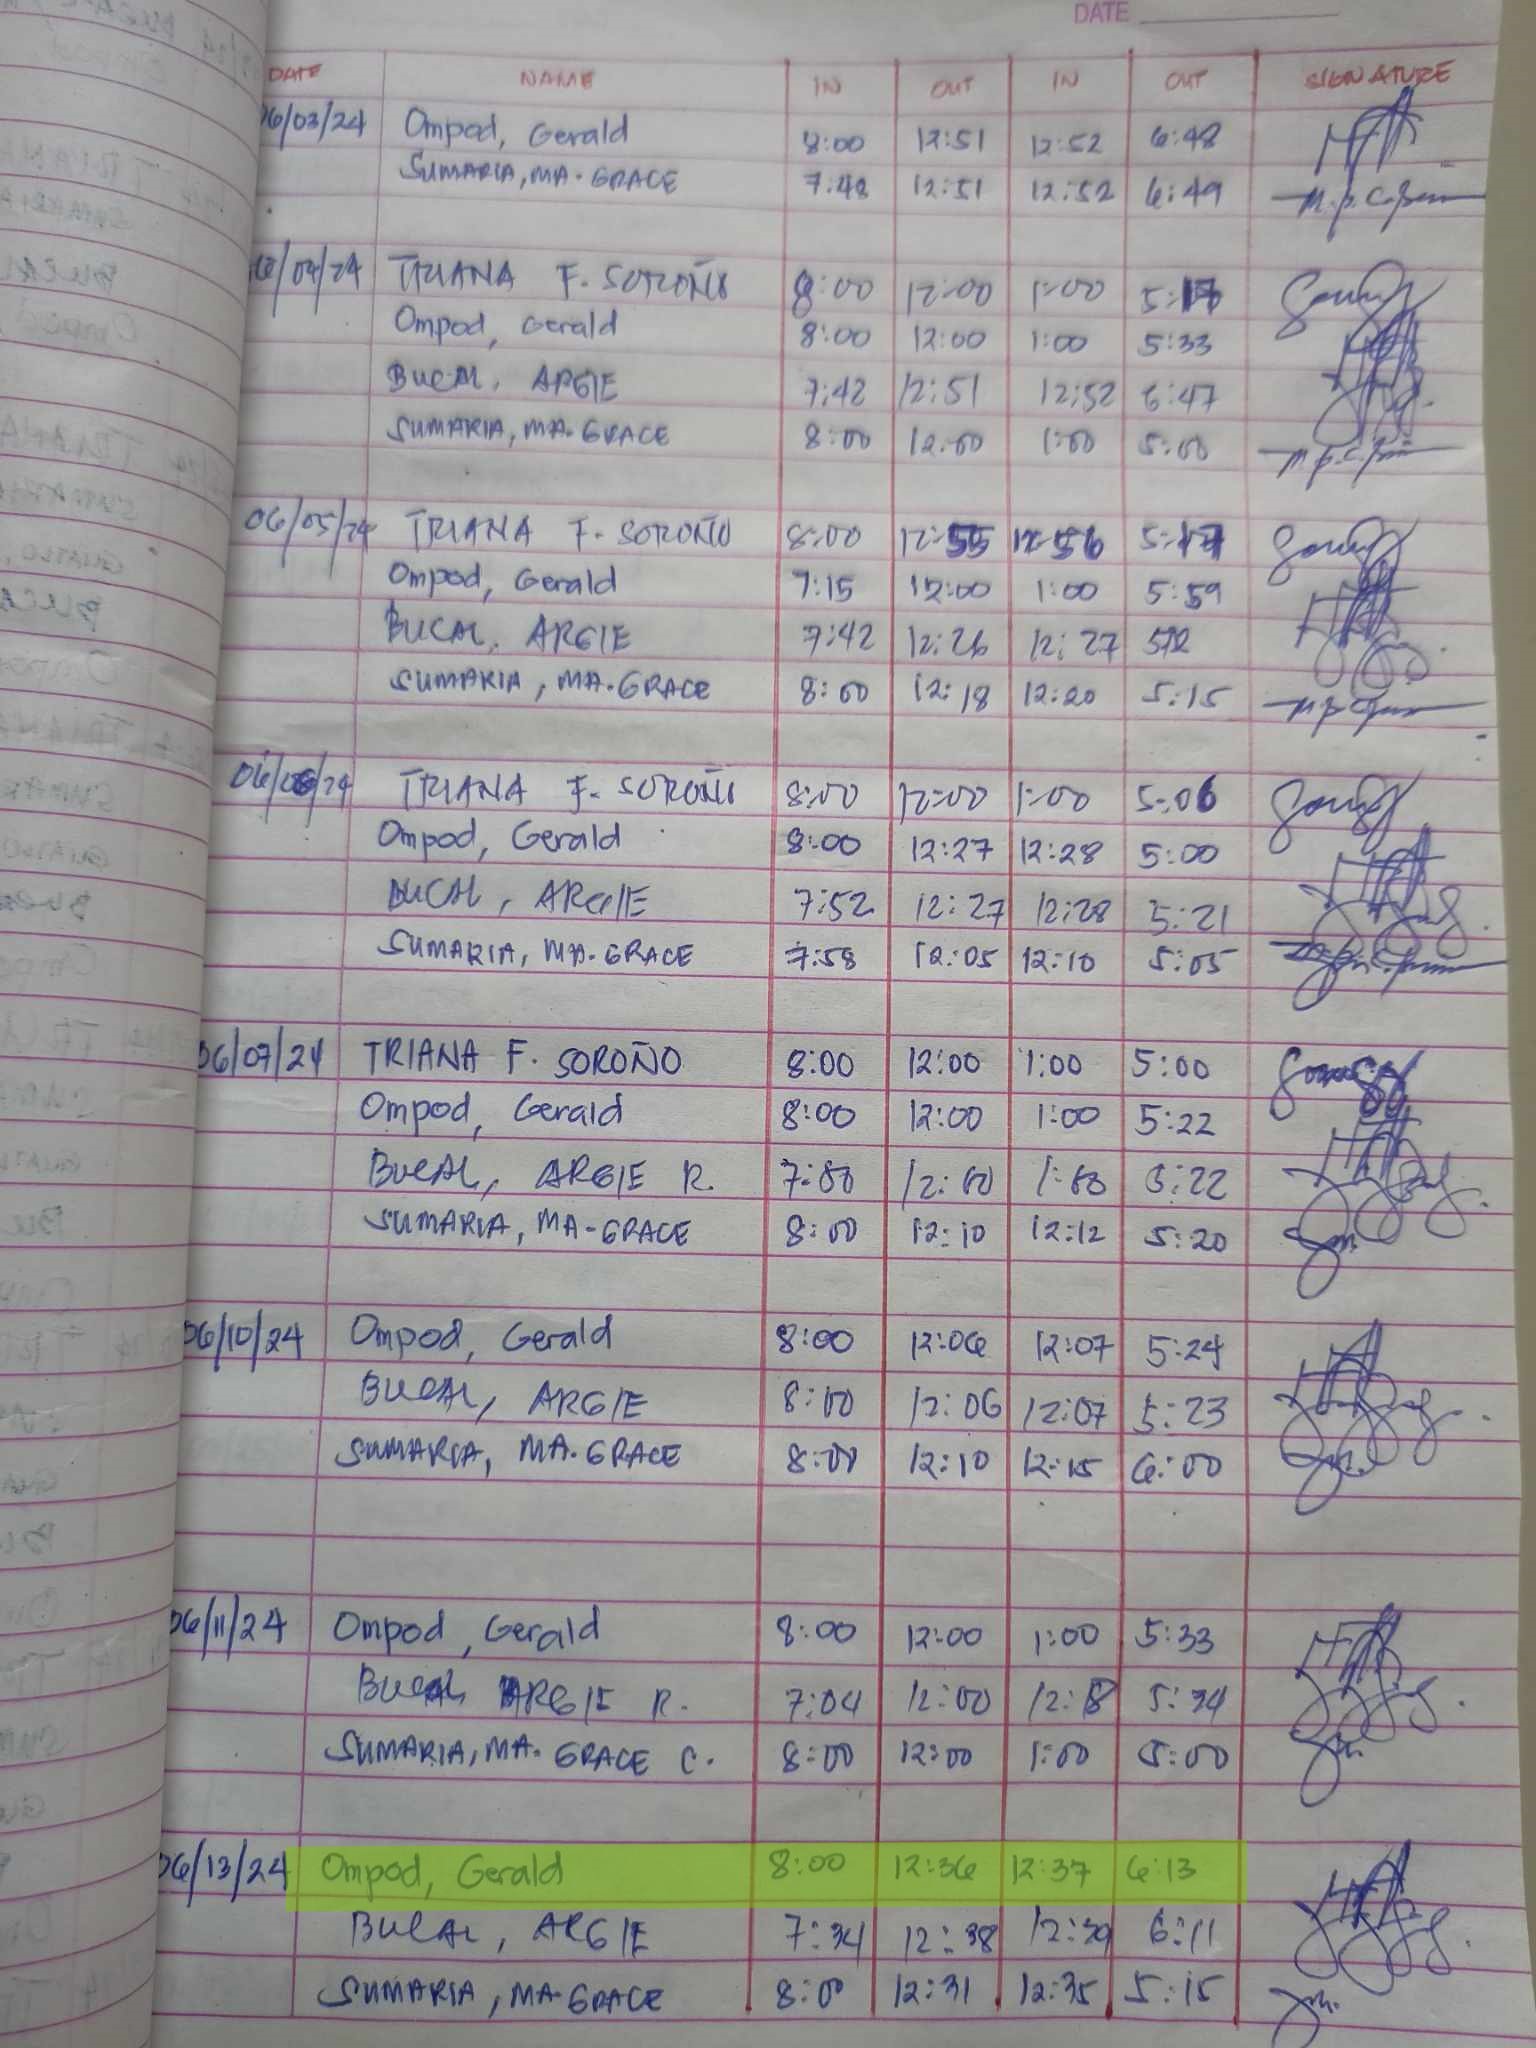 DATE
DATE NAME IN OUT IN OUT SIGNATURE
06/03/24 Ompod, Gerald 8:00 12:51 12:52 6:48
SUMARIA, MA. GRACE 7:48 12:51 12:52 6:49
06/04/24 TRIANA F. SOROÑO 8:00 12:00 1:00 5:17
Ompod, Gerald 8:00 12:00 1:00 5:33
BUCAL, ARGIE 7:42 12:51 12:52 6:47
SUMARIA, MA. GRACE 8:00 12:00 1:00 5:00
06/05/24 TRIANA F. SOROÑO 8:00 12:55 12:56 5:17
Ompod, Gerald 7:15 12:00 1:00 5:59
BUCAL, ARGIE 7:42 12:26 12:27
SUMARIA, MA. GRACE 8:00 12:18 12:20 5:15
06/06/24 TRIANA F. SOROÑO 8:00 12:00 1:00 5:06
Ompod, Gerald 8:00 12:27 12:28 5:00
BUCAL, ARGIE 7:52 12:27 12:28 5:21
SUMARIA, MA. GRACE 7:58 12:05 12:10 5:05
06/07/24 TRIANA F. SOROÑO 8:00 12:00 1:00 5:00
Ompod, Gerald 8:00 12:00 1:00 5:22
BUCAL, ARGIE R. 7:00 12:00 1:00 5:22
SUMARIA, MA-GRACE 8:00 12:10 12:12 5:20
06/10/24 Ompod, Gerald 8:00 12:06 12:07 5:24
BUCAL, ARGIE 8:00 12:06 12:07 5:23
SUMARIA, MA. GRACE 8:00 12:10 12:15 6:00
06/11/24 Ompod, Gerald 8:00 12:00 1:00 5:33
BUCAL ARGIE R. 7:04 12:00 12:18 5:34
SUMARIA, MA. GRACE C. 8:00 12:00 1:00 5:00
06/13/24 Ompod, Gerald 8:00 12:36 12:37 6:13
BUCAL, ARGIE 7:34 12:38 12:39 6:11
SUMARIA, MA-GRACE 8:00 12:31 12:35 5:15